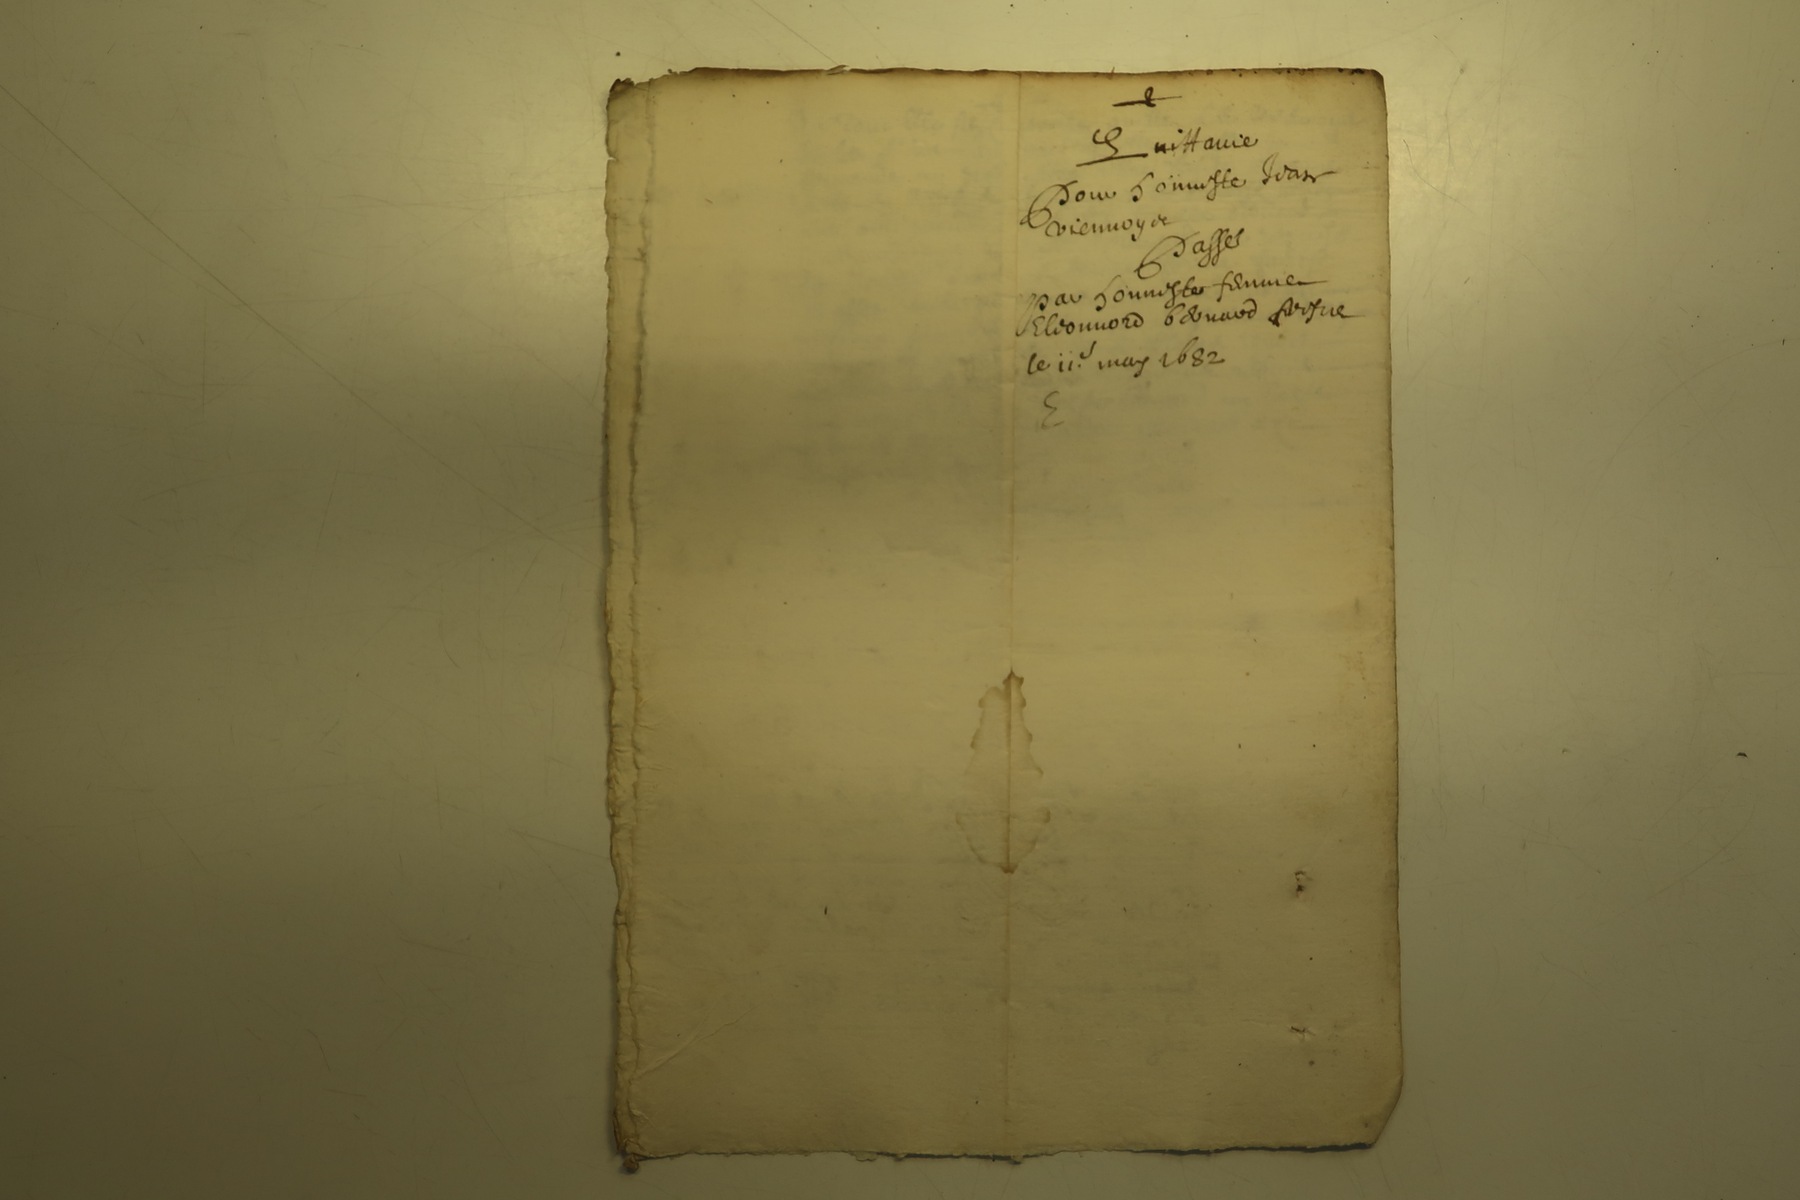 Quittance
Pour honneste Jean
viennoys
Passee
Par honneste femme
Eleonnord bernard
le ii.e may 1682